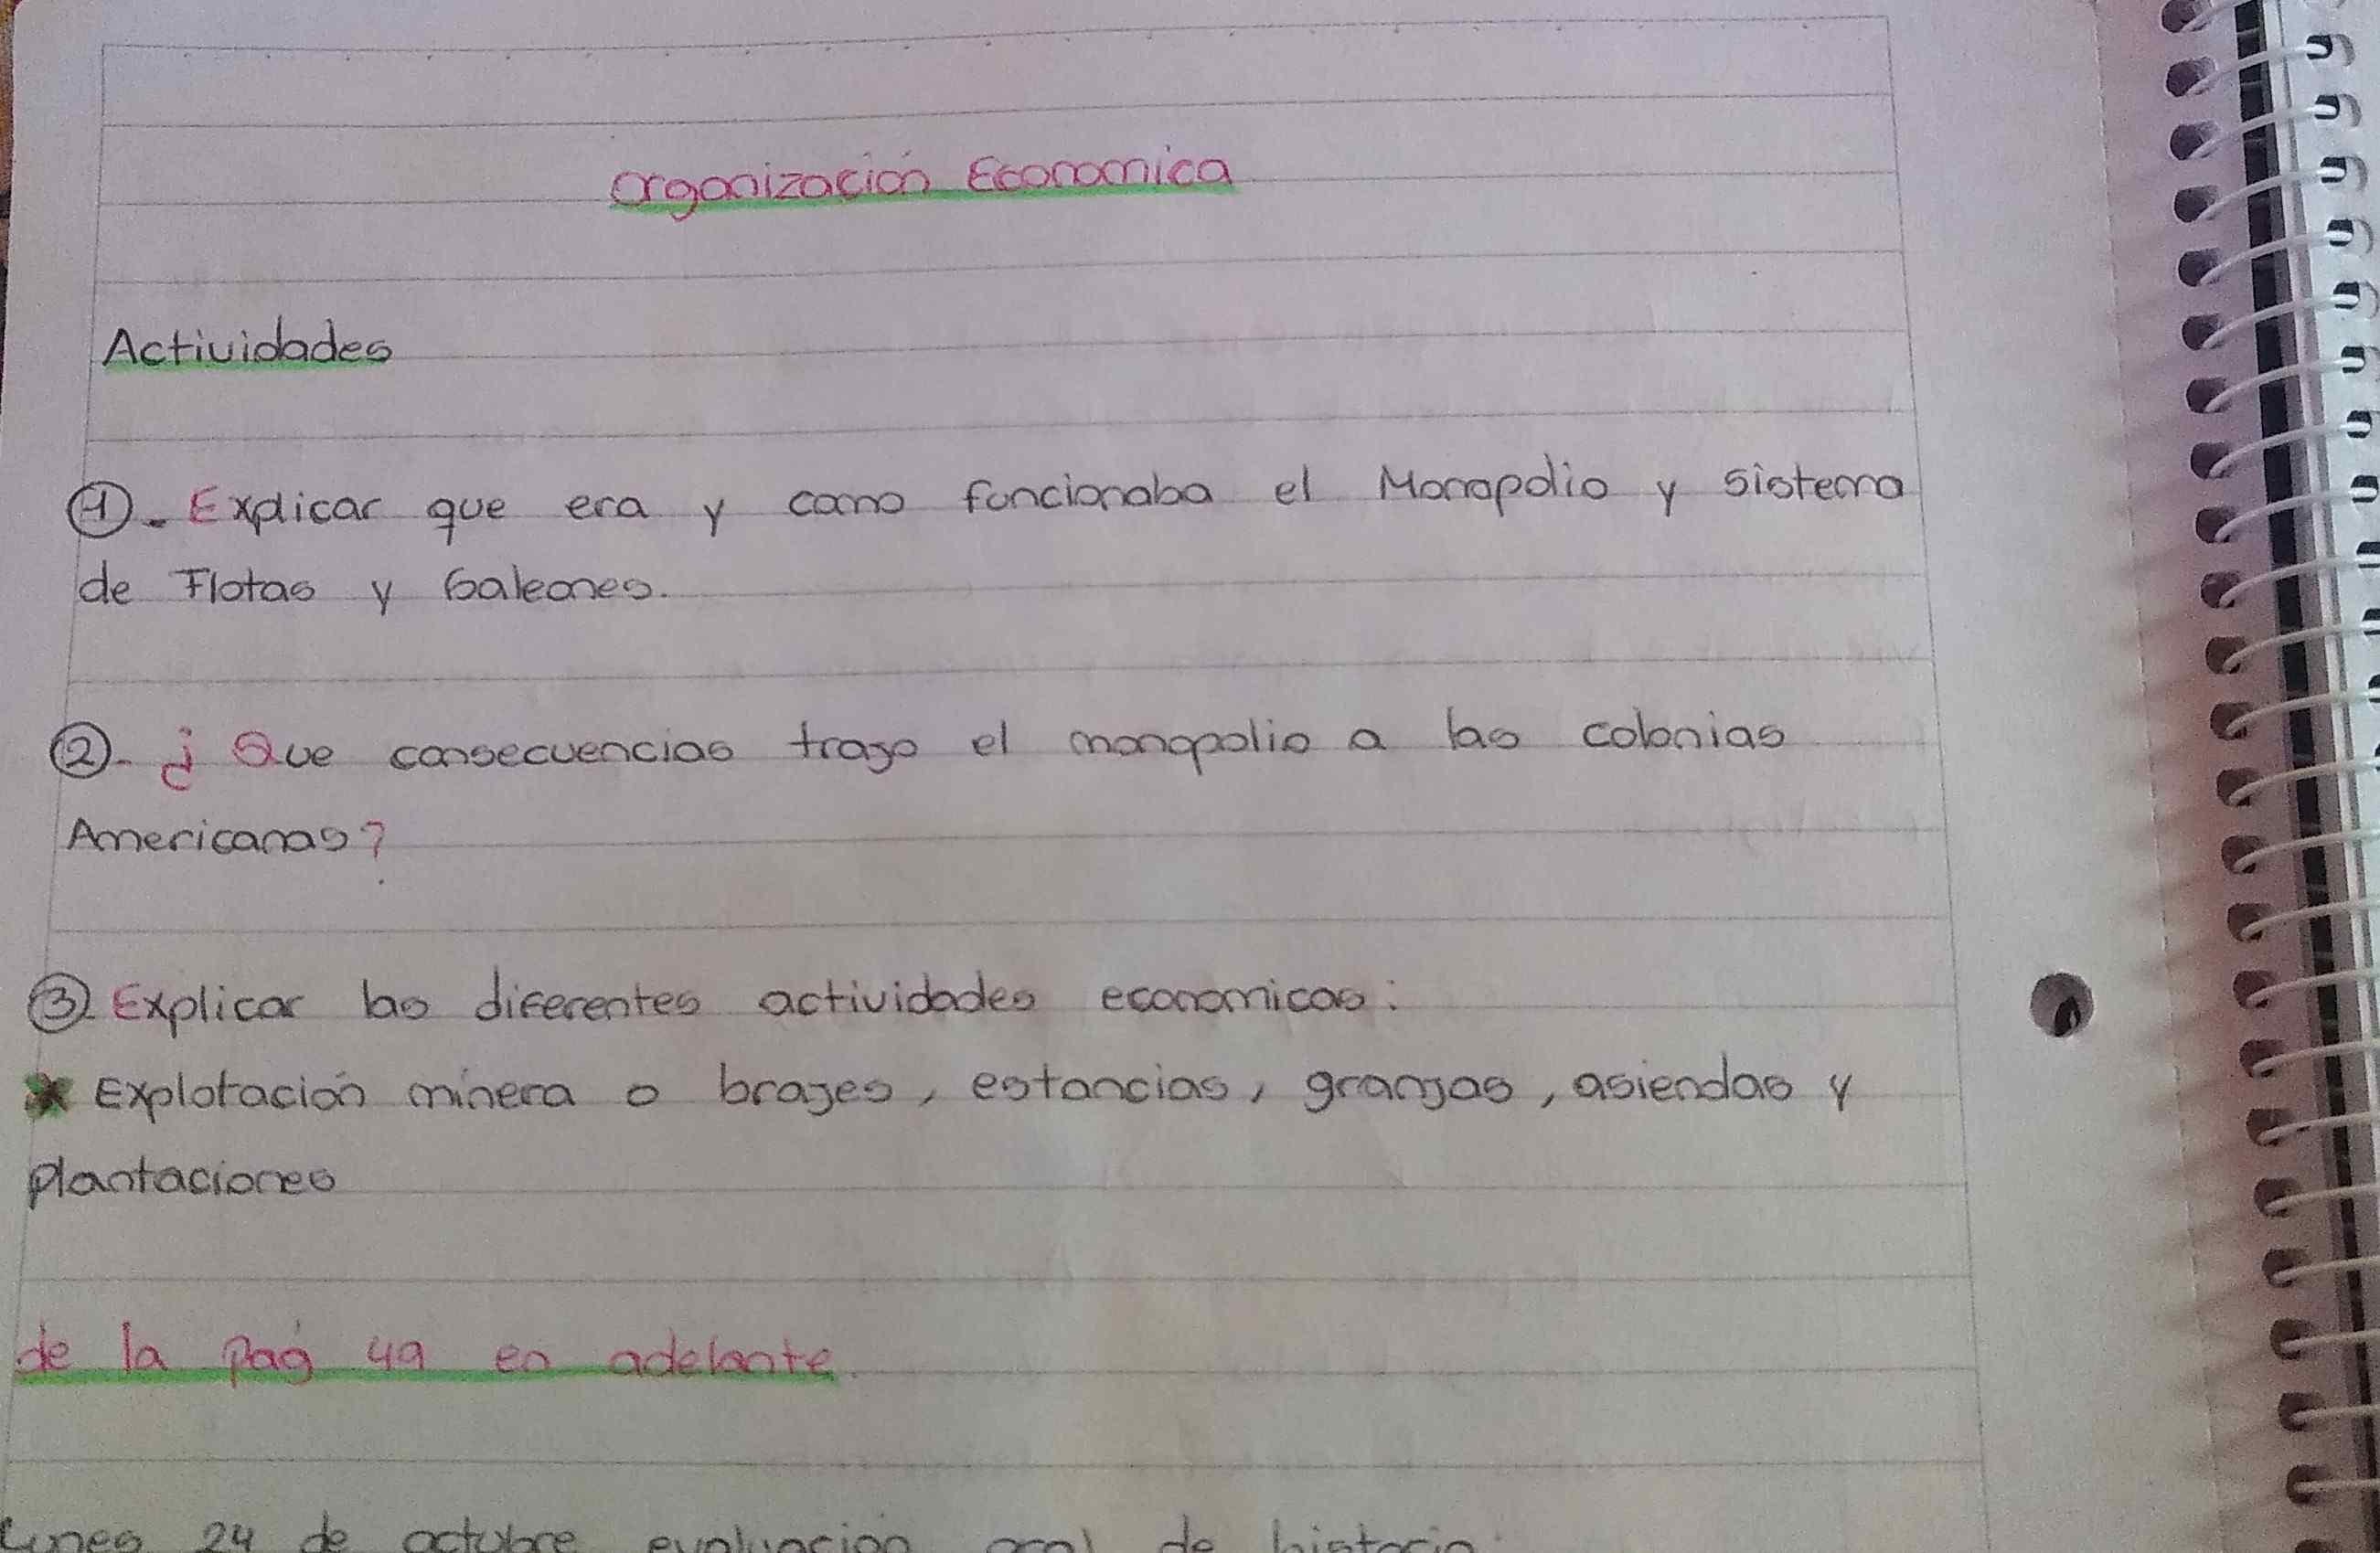 Organización Economica
Actividades
1.- Explicar que era y como funcionaba el Monopolio y sistema
de Flotas y Galeones.
2.- ¿Que consecuencias trajo el monopolio a las colonias
Americanas?
3. Explicar las diferentes actividades economicas:
x Explotación minera o brajes, estancias, granjas, asiendas y
plantaciones
de la pág 49 en adelante.
Lunes 24 de octubre evaluación oral de historia.